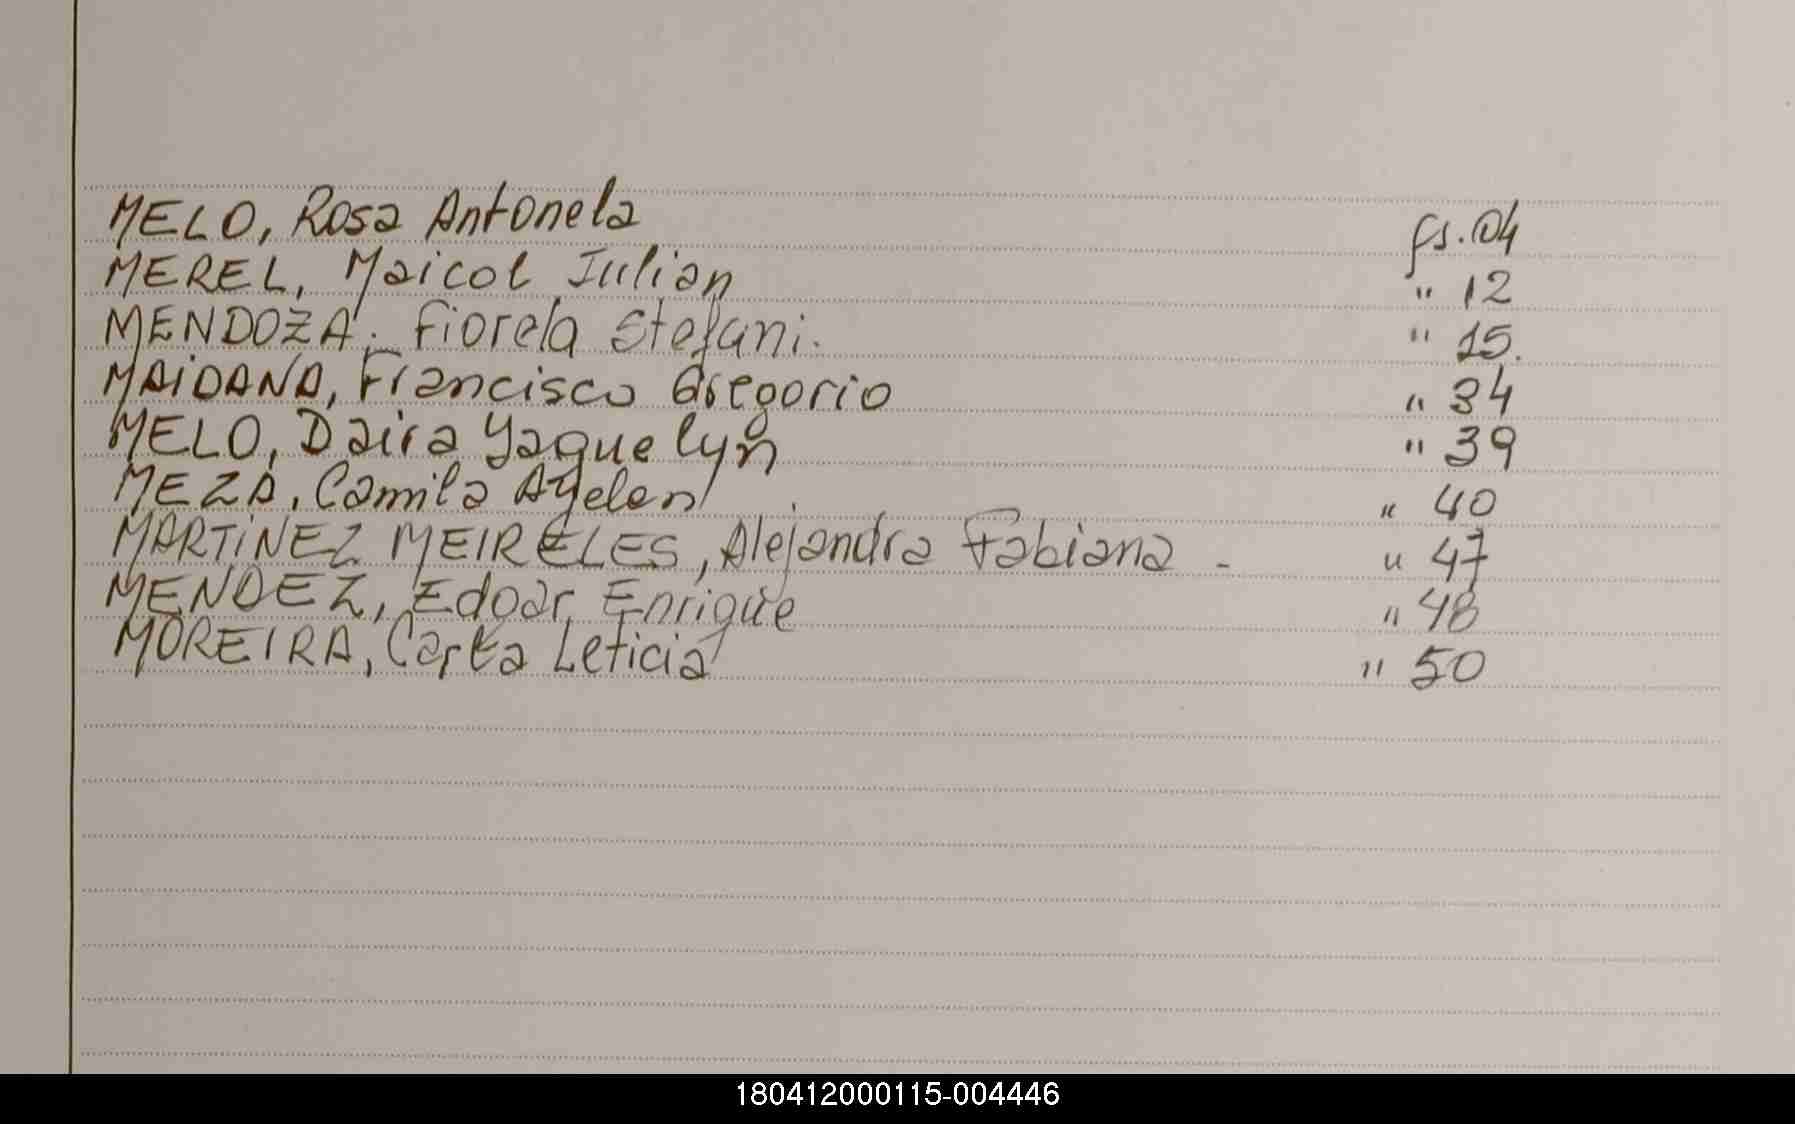 MELO, Rosa Antonela fs. 04
MEREL, Maicol Iulian " 12
MENDOZA. Fiorela Stefani. " 15.
MAIDANA, Francisco Gregorio " 34
MELO, Daira Yaquelyn " 39
MEZA, Camila Ayelen " 40
MARTiNEZ MEIRELES, Alejandra Fabiana - " 47
MENDEZ, Edgar Enrique " 48
MOREIRA, Carla Leticia " 50
180412000115-004446